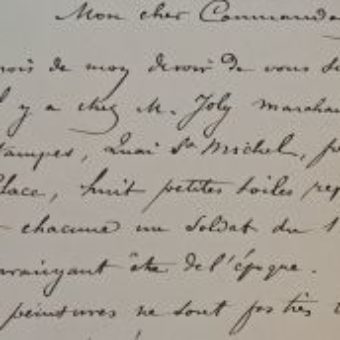 Mon cher Commanda
rois de moy devoir de vous s
l y a chez M. Joly marchan
tampes, Quai St Michel, p
lace, huit petites toiles rep
t chacune un Soldat du 1
araiyant être de l'époque.
peintures ne sont pas très